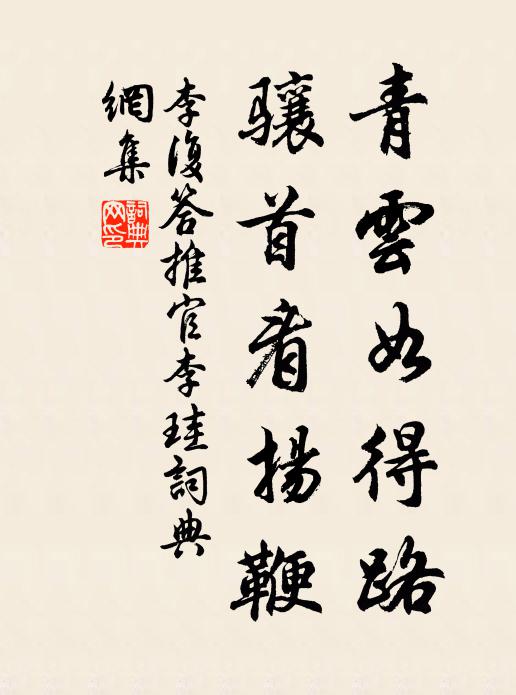 青雲如得路
驤首看揚鞭
李復答推官李珪詞典
網集
詞典網印